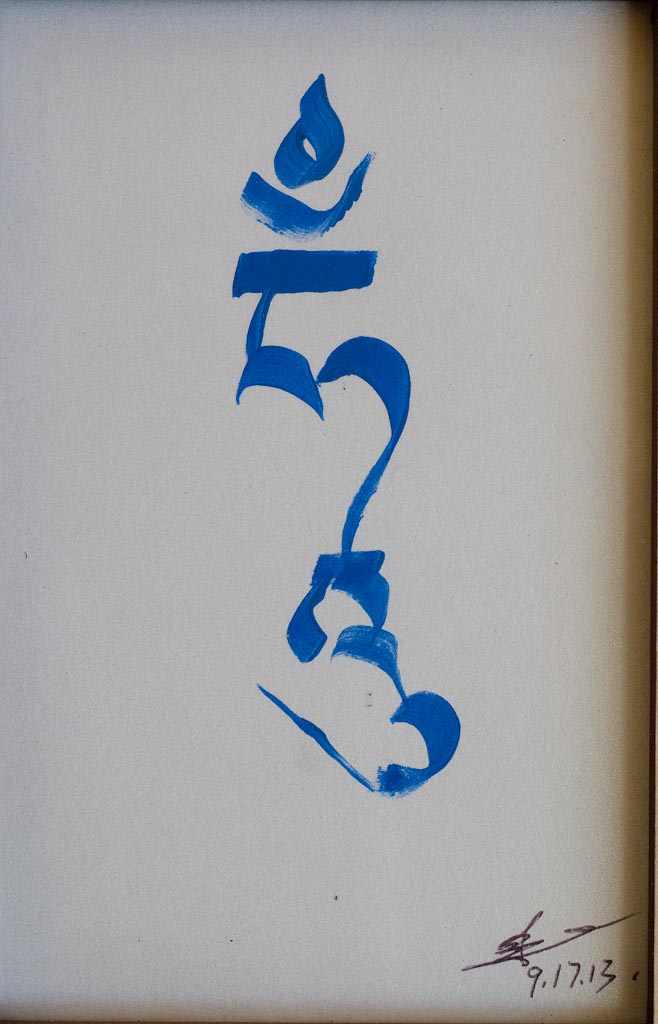 ཧཱུྃ
9.17.13.